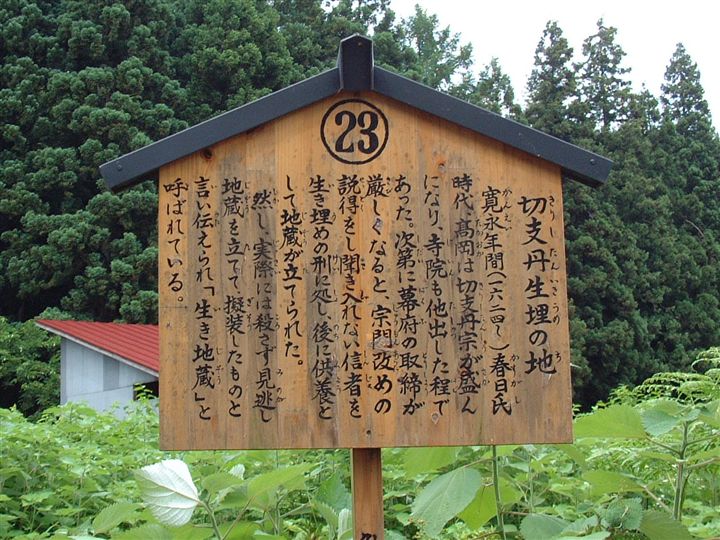 23
切支丹生埋の地
寛永年間(一六二四〜)春日氏
時代、髙岡は切支丹宗が盛ん
になり、寺院も他出した程で
あった。次第に幕府の取締が
厳しくなると、宗門改めの
説得をし聞き入れない信者を
生き埋めの刑に処し、後に供養と
して地蔵が立てられた。
然し、実際には殺さず見逃し
地蔵を立てて、擬装したものと
言い伝えられ「生き地蔵」と
呼ばれている。